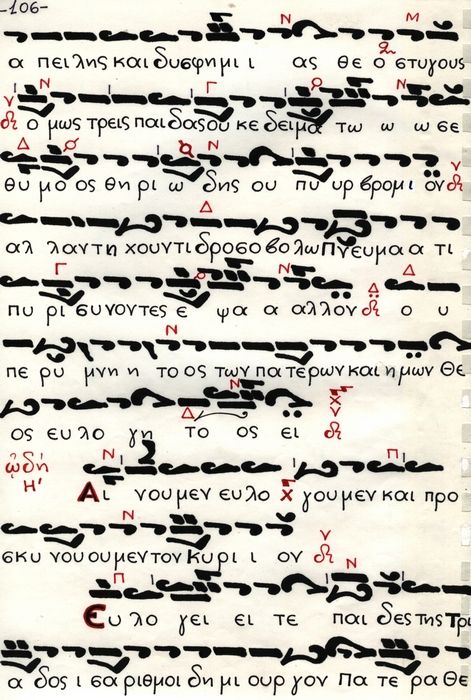 -106-
α πει λης και δυσφημι ι ας θε ο στυγους
ο μως τρεις παι δας ου κε δειμα τω ω ω σε
θυ μο ος θη ρι ω δης ου πυ υρ βρομι ον
αλ λαν τη χουν τι δροσο βο λω Πνευμα α τι
πυ ρι συνοντες ε ψα α αλλον ο υ
πε ρυ μνη η το ος των πα τε ρων και η μων Θε
ος ευ λο γη το ος ει
ᾠδή Η' Αι νουμεν ευλο γουμεν και προ
σκυ νου ουμεν τον Κυρι ι ον
Ευ λο γει ει τε παι δες της Τρι
α δος ι σαριθμοι δη μι ουρ γον Πα τε ρα Θε